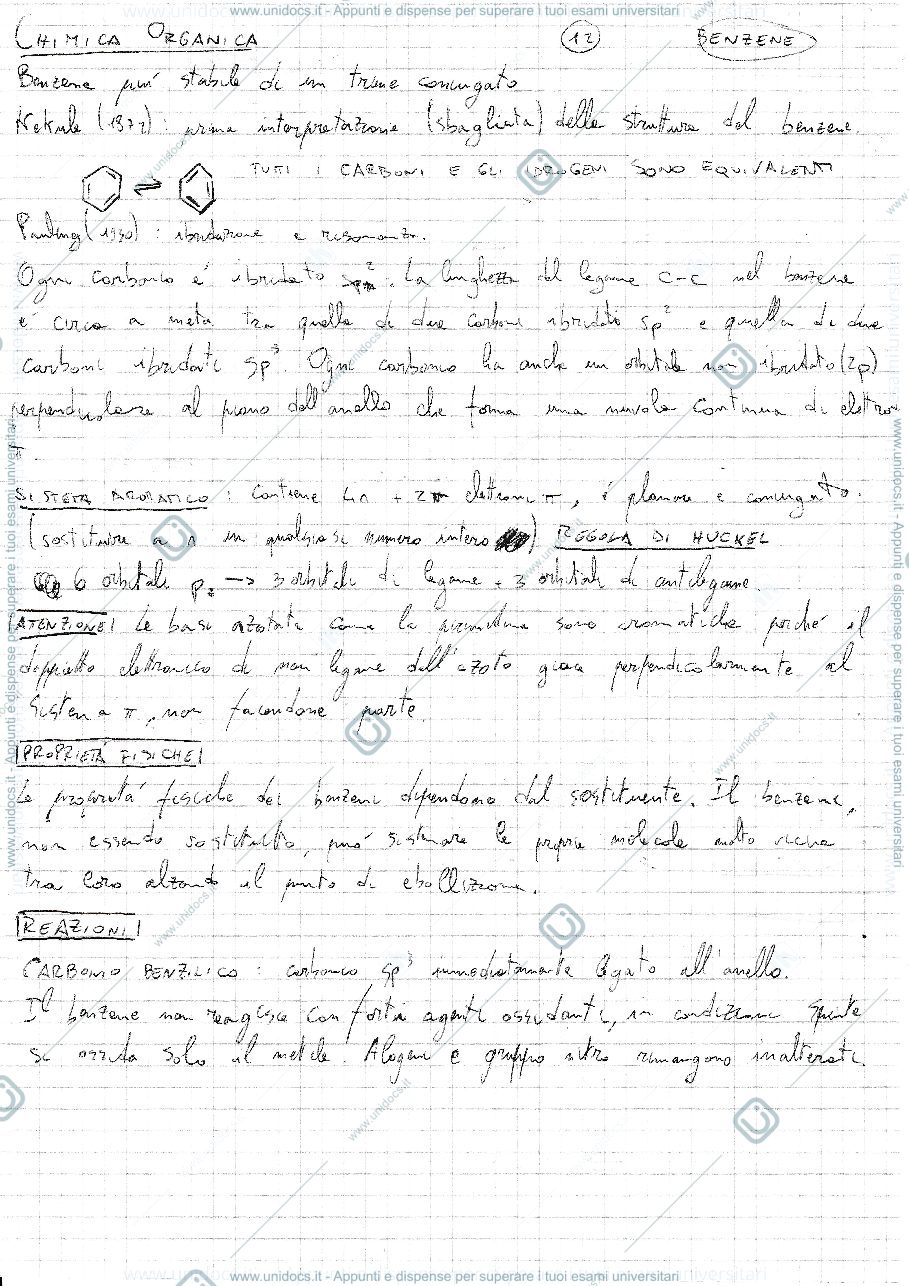 www.unidocs.it - Appunti e dispense per superare i tuoi esami universitari
CHIMICA ORGANICA 12 BENZENE
Benzene più stabile di un triene coniugato
Kekule (1872) : prima interpretazione (sbagliata) della struttura del benzene.
TUTI I CARBONI E GLI IDROGENI SONO EQUIVALENTI
Pauling (1930) : ibridazione e risonanza.
Ogni carbonio é ibridato sp². La lunghezza del legame C-C nel benzene
é circa a metà tra quella di due carboni ibridati sp² e quella di due
carboni ibridati sp³. Ogni carbonio ha anche un orbitale non ibridato (2p)
perpendicolare al piano dell'anello che forma una nuvola continua di elettroni
π.
SISTEMA AROMATICO : Contiene 4n + 2 elettroni π, é planare e coniugato.
(sostituire a n un qualsiasi numero intero) REGOLA DI HUCKEL
6 orbitali p -> 3 orbitali di legame + 3 orbitali di antilegame.
ATENZIONE! Le basi azotate come la piridina sono aromatiche perché il
doppietto elettronico di non legame dell'azoto giace perpendicolarmente al
sistema π, non facendone parte.
PROPRIETÀ FISICHE
Le proprietá fisiche dei benzeni dipendono dal sostituente. Il benzene,
non essendo sostituito, puó sistemare le proprie molecole molto vicine
tra loro alzando il punto di ebollizione.
REAZIONI
CARBONIO BENZILICO : carbonio sp³ immediatamente legato all'anello.
Il benzene non reagisce con forti agenti ossidanti, in condizioni spinte
si ossida solo il metile. Alogeni e gruppo nitro rimangono inalterati.
www.unidocs.it - Appunti e dispense per superare i tuoi esami universitari